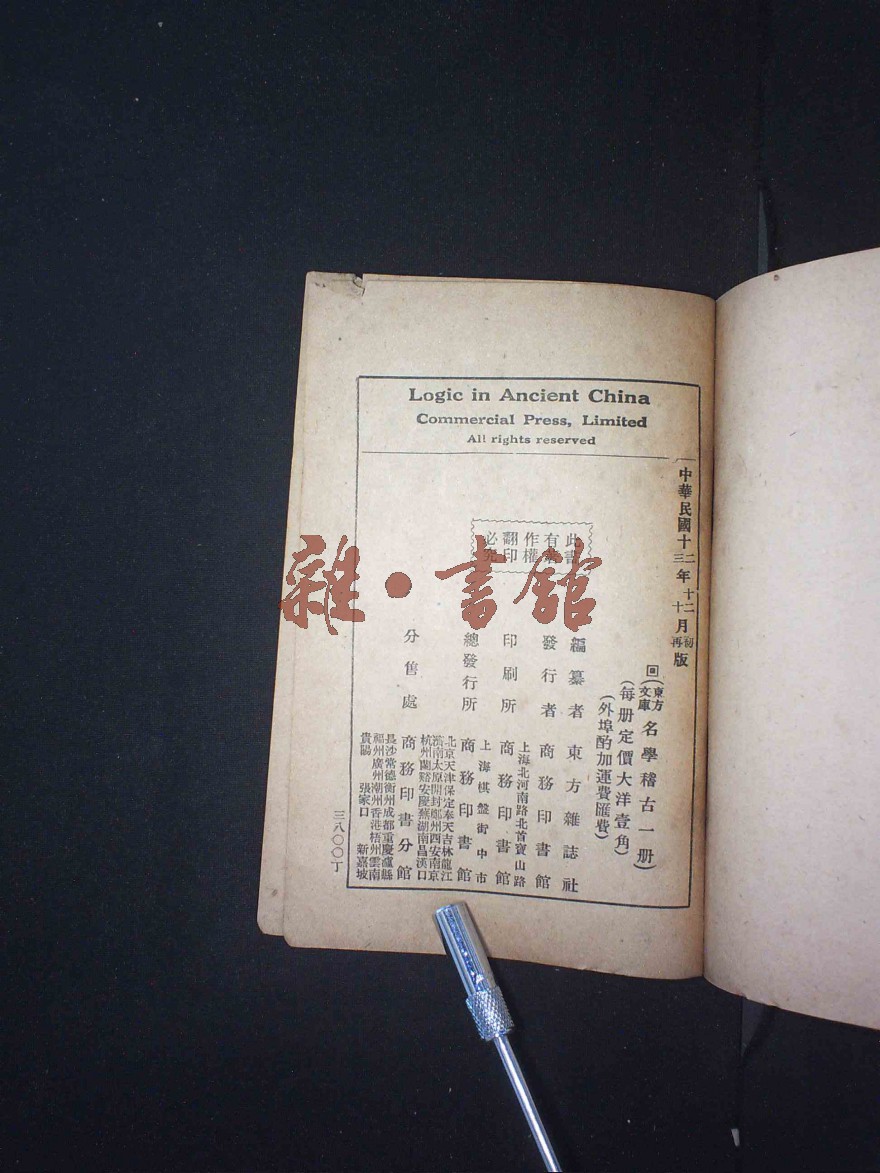 Logic in Ancient China
Commercial Press, Limited
All rights reserved
中華民國十二三年十二十月初再版
回(東方文庫名學稽古一册)
(每册定價大洋壹角)
(外埠酌加運費匯費)
此書
有著
作權
翻印
必究
編纂者 東方雜誌社
發行者 商務印書館
上海北河南路北首寶山路
印刷所 商務印書館
上海棋盤街中市
總發行所 商務印書館
北京天津保定奉天吉林龍江
濟南太原開封鄭州西安南京
杭州蘭谿安慶蕪湖南昌漢口
分售處 商務印書分館
長沙常德衡州成都重慶瀘縣
福州廣州潮州香港梧州雲南
貴陽 張家口 新嘉坡
三八〇〇丁
雜·書館